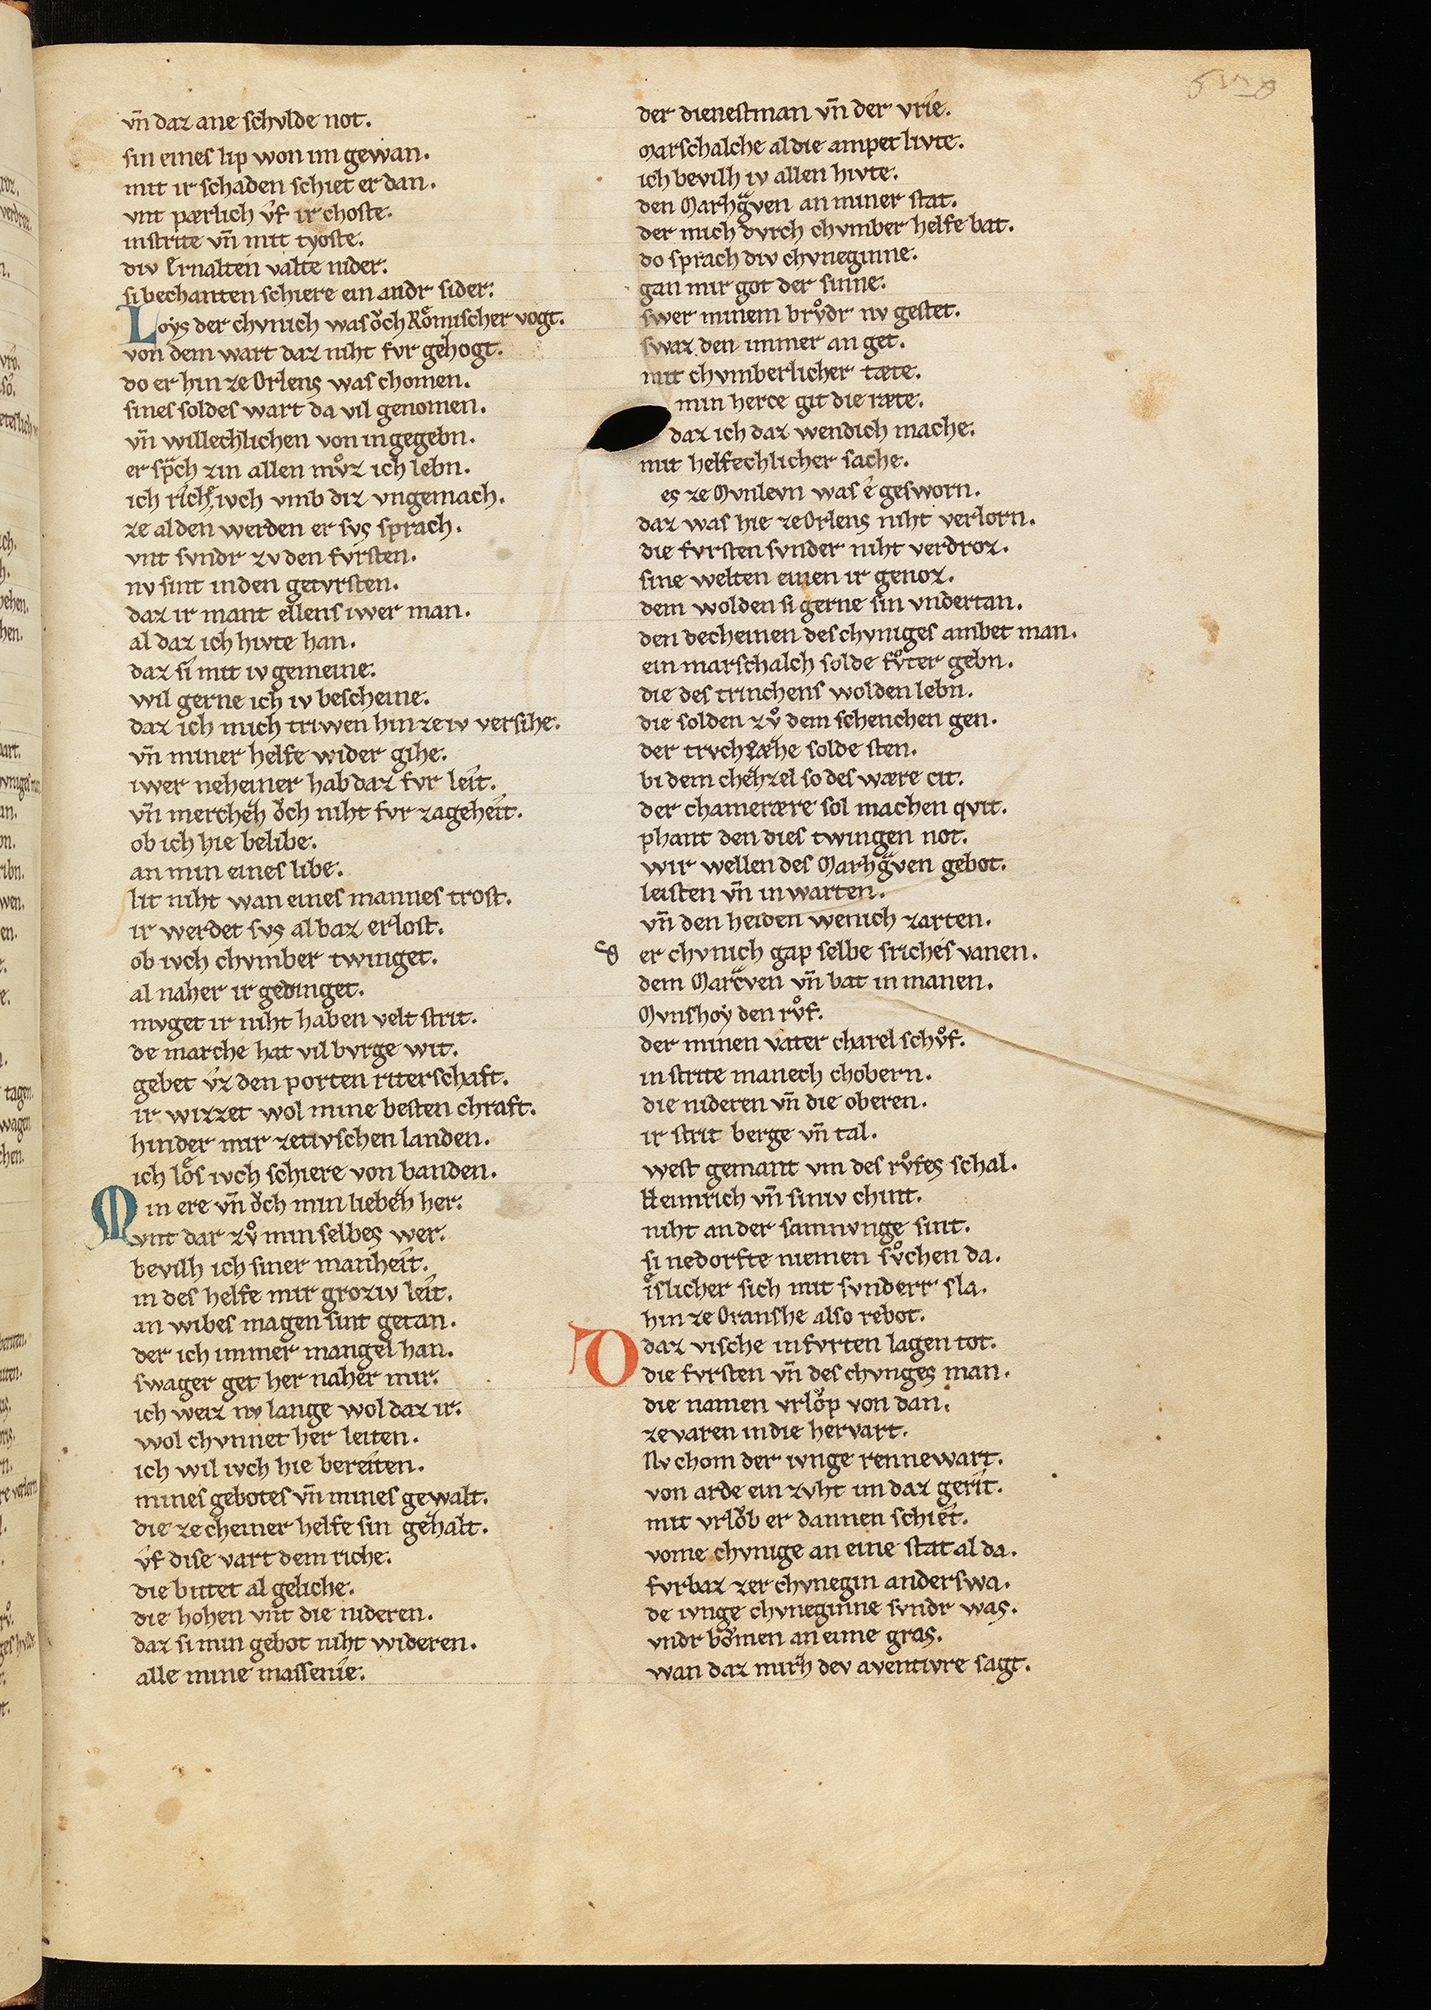 vn̄ daz ane schvlde not.
sin eines lip won im gewan.
mit ir schaden schiet er dan.
vnt pærlich v̂f ir choste.
in strite vn̄ mit tyoste.
div Ernalten valte nider.
si bechanten schiere ein andr sider.
Loys der chvnich was ǒch Rǒmischer vogt.
von dem wart daz niht fvr gehogt.
do er hin ze Orlens was chomen.
sines soldes wart da vil genomen.
vn̄ willechlichen von in gegebn.
er sp̄ch zin allen mv̊z ich lebn.
ich rich ivch vmb diz vngemach.
ze al den werden er svs sprach.
vnt svndr zv den fvrsten.
nv sint in den getvrsten.
daz ir mant ellens iwer man.
al daz ich hivte han.
daz si mit iv gemeine.
wil gerne ich iv bescheine.
daz ich mich triwen hin ze iv versihe.
vn̄ miner helfe wider gihe.
iwer neheiner hab daz fvr leit.
vn̄ mercheh ǒch niht fvr zageheit.
ob ich hie belibe.
an min eines libe.
lit niht wan eines mannes trost.
ir werdet svs al baz erlost.
ob ivch chvmber twinget.
al naher ir gedinget.
mvget ir niht haben velt strit.
de marche hat vil bvrge wit.
gebet v̂z den porten riterschaft.
ir wizzet wol mine besten chraft.
hinder mir ze tivschen landen.
ich lǒs ivch schiere von banden.
Min ere vn̄ ǒch min liebeh her.
vnt dar zv̊ min selbes wer.
bevilh ich siner manheit.
in des helfe mir groziv leit.
an wibes magen sint getan.
der ich immer mangel han.
swager get her naher mir.
ich weiz nv lange wol daz ir.
wol chvnnet her leiten.
ich wil ivch hie bereiten.
mines gebotes vn̄ mines gewalt.
die ze cheiner helfe sin gehalt.
v̂f dise vart dem riche.
die bittet al geliche.
die hohen vnt die nideren.
daz si min gebot niht wideren.
alle mine massenie.
der dienestman vn̄ der vrie.
Marschalche al die ampet livte.
ich bevilh iv allen hivte.
den Marhg̈ven an miner stat.
der mich dvrch chvmber helfe bat.
do sprach div chvneginne.
gan mir got der sinne.
swer minem brv̊dr nv gestet.
swaz den immer an get.
mit chvmberlicher tæte.
min herce git die ræte.
daz ich daz wendich mache.
mit helfechlicher sache.
es ze Mvnlevn was ê gesworn.
daz was hie ze Orlens niht verlorn.
die fvrsten svnder niht verdroz.
sine welten einen ir genoz.
dem wolden si gerne sin vndertan.
den decheinen des chvniges ambet man.
ein marschalch solde fv̊ter gebn.
die des trinchens wolden lebn.
die solden zv̊ dem schenchen gen.
der trvchsæhe solde sten.
bi dem chehzel so des wære cit.
der chameræere sol machen qvit.
phant den dies twingen not.
wir wellen des Marhg̈ven gebot.
leisten vn̄ in warten.
vn̄ den heiden wenich zarten.
er chvnich gap selbe sriches vanen.
dem Marc̈ven vn̄ bat in manen.
Mvnshoy den rv̊f.
der minen vater charel schv̊f.
in strite manech chobern.
die nideren vn̄ die oberen.
ir strit berge vn̄ tal.
west gemant vm des rv̊fes schal.
Heimrich vn̄ siniv chint.
niht an der samnvnge sint.
si nedorfte niemen sv̊chen da.
îslicher sich mit svnderr sla.
hin ze Oranshe also rebot.
daz vische in fvrten lagen tot.
die fvrsten vn̄ des chvnges man.
die namen vrlǒp von dan.
ze varen in die hervart.
Nv chom der ivnge rennewart.
von arde ein zvht im daz geriet.
mit vrlǒb er dannen schiet.
vome chvnige an eine stat al da.
fvrbaz zer chvnegin anderswa.
de ivnge chvneginne svndr was.
vndr bǒmen an eime gras.
wan daz mirh dev aventivre sagt.